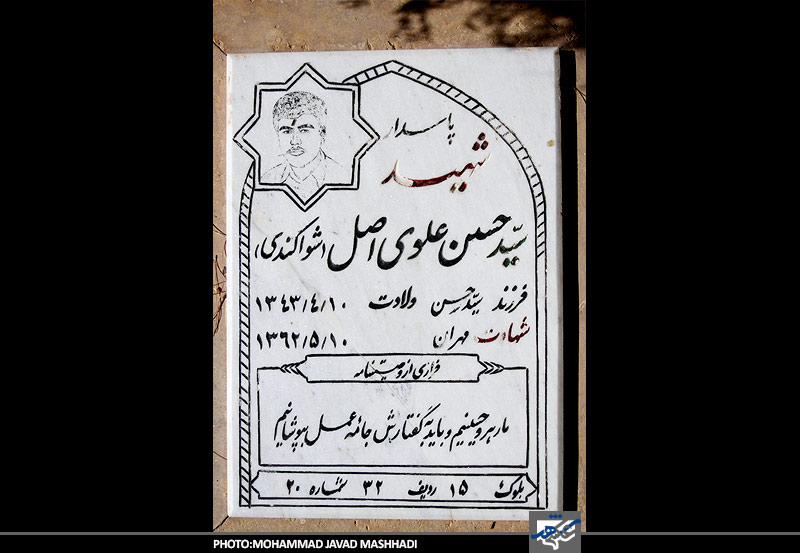 پاسدار
شهید
سیّد حسین علوی اصل (شواکندی)
فرزند سیّد حسن ولادت ۱۳۴۳/۴/۱۰
شهادت مهران ۱۳۶۲/۵/۱۰
فرازی از وصیتنامه
ما رهرو حسینیم و باید به گفتارش جامه عمل بپوشانیم
بلوک ۱۵ ردیف ۳۲ شماره ۲۰
PHOTO:MOHAMMAD JAVAD MASHHADI